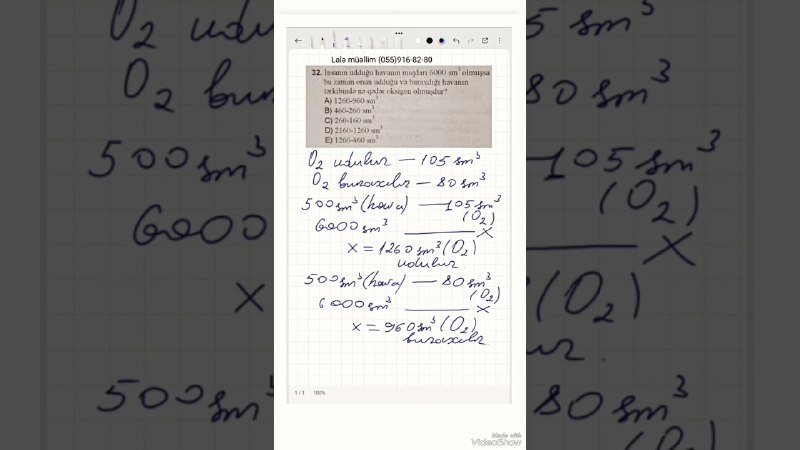 Lalə müəllim (055)916-82-80
32. İnsanın udduğu havanın miqdarı 6000 sm³ olmuşsa
bu zaman onun udduğu və buraxdığı havanın
tərkibində nə qədər oksigen olmuşdur?
A) 1260-960 sm³
B) 460-260 sm³
C) 260-160 sm³
D) 2160-1260 sm³
E) 1260-460 sm³
O₂ udulur — 105 sm³
O₂ buraxılır — 80 sm³
500 sm³ (hava) — 105 sm³
(O₂)
6000 sm³ — x
x = 1260 sm³ (O₂)
udulur.
500 sm³ (hava) — 80 sm³
(O₂)
6000 sm³ — x
x = 960 sm³ (O₂)
buraxılır.
1/1 100%
Made with
VideoShow